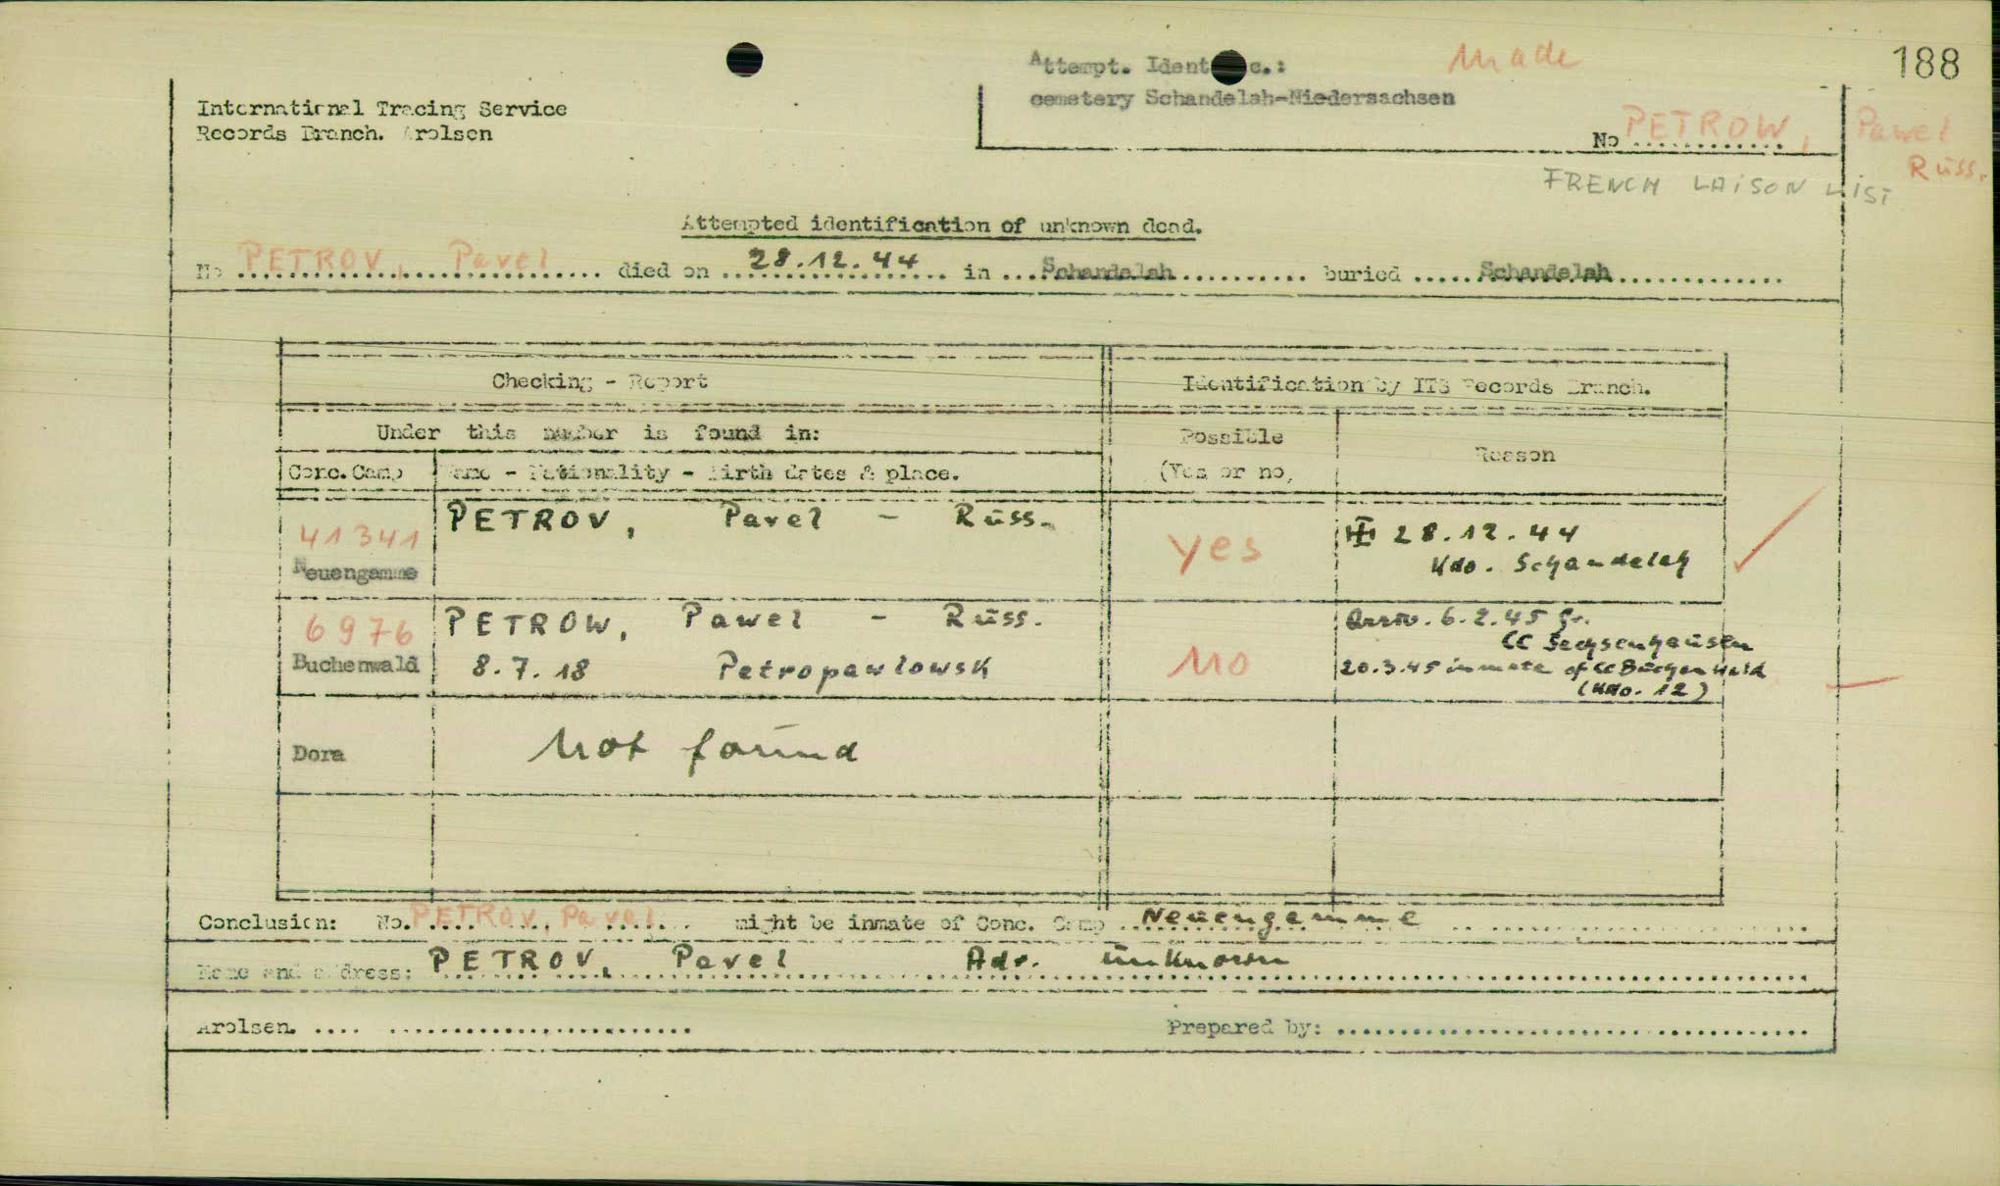 188
Attempt. Ident c.: Made
cemetery Schandelah-Niedersachsen
International Tracing Service
Records Branch. Arolsen
No PETROW, Pawel
Russ.
FRENCH LAISON LIST
Attempted identification of unknown dead.
No PETROV, Pavel died on 28.12.44 in Schandelah buried Schandelah
Checking - Report
Identification by ITS Records Branch.
Under this number is found in:
Possible
(Yes or no,
Reason
Conc.Camp Name - Nationality - Birth dates & place.
41341
Neuengamme
PETROV, Pavel - Russ.
yes
28.12.44
Kdo. Schandelah
6976
Buchenwald
PETROW, Pawel - Russ.
8.7.18 Petropawlowsk
No
Arriv. 6.2.45 fr.
CC Sachsenhausen
20.3.45 inmate of CC Buchenwald
(Kdo. 12)
Dora
Not found
Conclusion: No. PETROV, Pavel might be inmate of Conc. Camp Neuengamme
Name and address: PETROV, Pavel Adr. unknown
Arolsen. .... ....................... Prepared by: ....................................